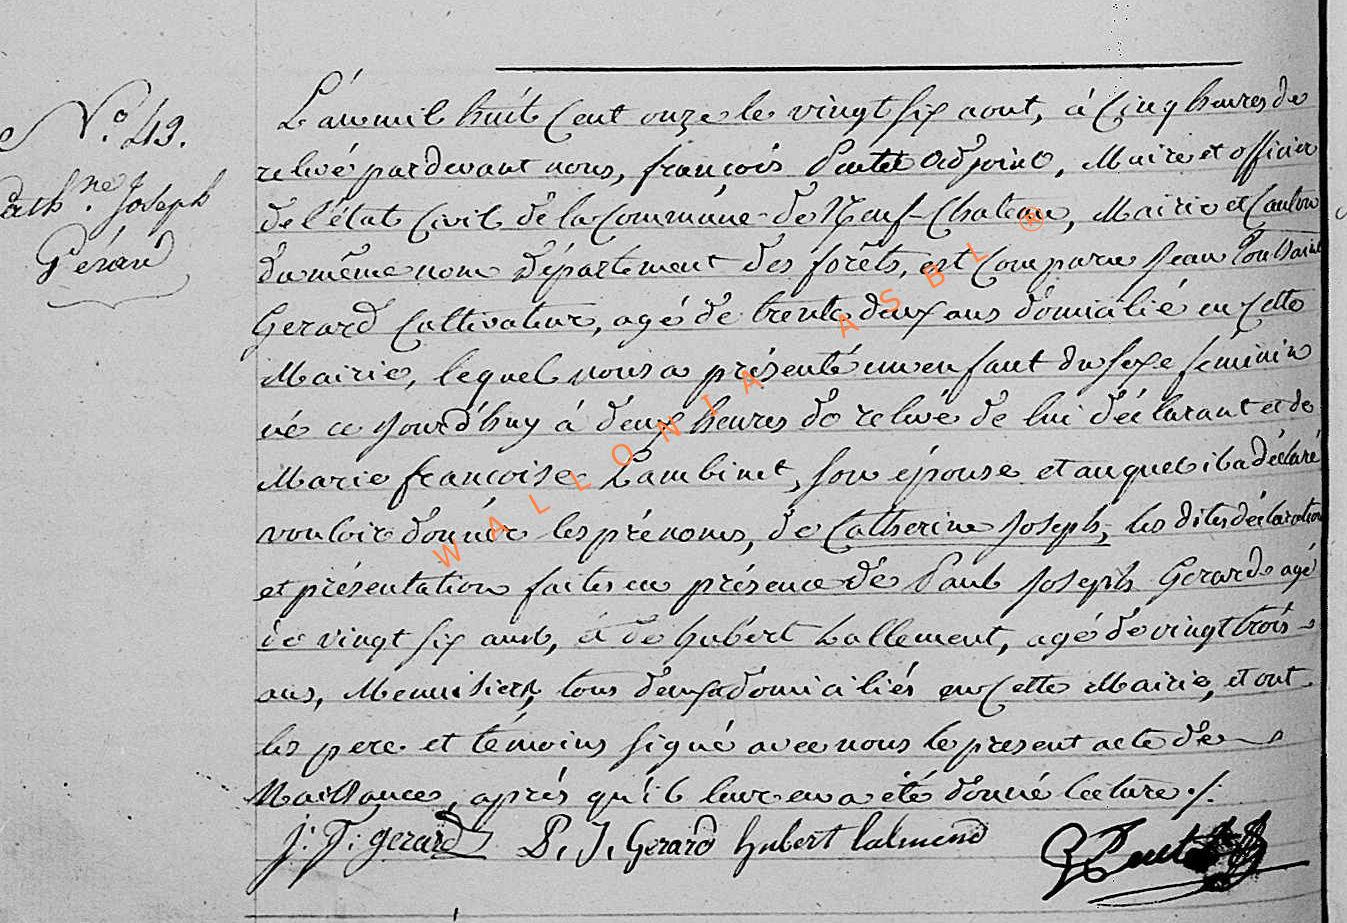 N.º 49.
Cath.ne Joseph
Gérard
L'an mil huit Cent onze le vingt six aout, à Cinq heures de
relivé pardevant nous, françois adjoint, Maire et officier
de l'état Civil de la Commune de Neuf-Chateau, Mairie et Canton
du même nom Département des forêts, est Comparu Jean Toussaint
Gerard Cultivateur, agé de trente deux ans domicilié en Cette
Mairie, lequel nous a présenté un enfant du sexe féminin
né ce jourd'huy à deux heures de relivé de lui déclarant et de
Marie françoise Lambinet, son épouse et auquel il a déclaré
vouloir donner les prénoms, de Catherine Joseph, les dites déclaration
et présentation faites en présence de Paul Joseph Gerard agé
de vingt six ans, et de hubert Lallement, agé de vingt trois
ans, Menuisiers, tous deux domiciliés en Cette Mairie, et ont
les pere et témoins signé avec nous le present acte de
Naissance, après qu'il leur en a été donné lecture ./.
J: T: gerard P. J. Gerard hubert lalmend
WALLONIA ASBL ®